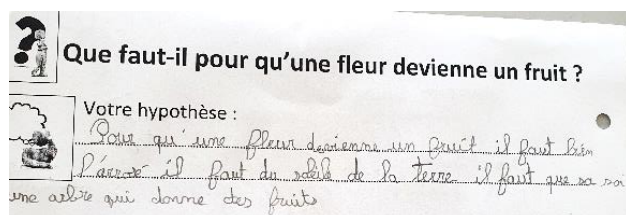 ?
Que faut-il pour qu'une fleur devienne un fruit ?
Votre hypothèse :
Pour qu'une fleur devienne un fruit il faut bien
l'arrosé il faut du soleile de la terre il faut que sa soi
une arbre qui donne des fruits